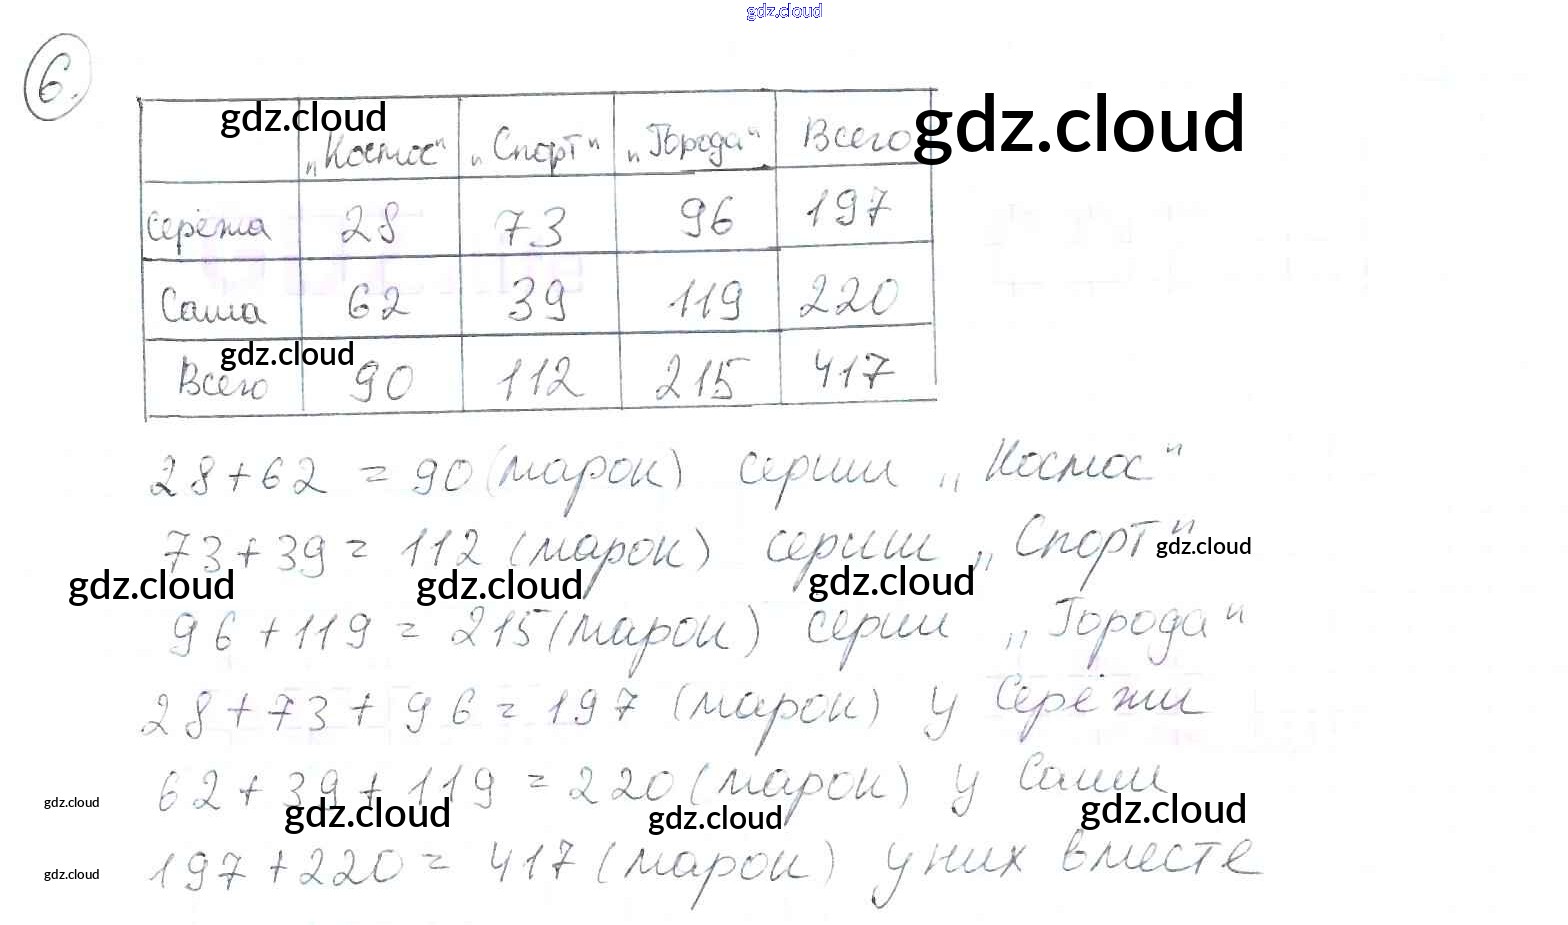 gdz.cloud
6.
gdz.cloud
gdz.cloud
„Космос“ „Спорт“ „Города“ Всего
Серёжа 28 73 96 197
Саша 62 39 119 220
gdz.cloud
Всего 90 112 215 417
28+62 = 90 (марок) серии „Космос“
73+39 = 112 (марок) серии „Спорт“
gdz.cloud
gdz.cloud gdz.cloud gdz.cloud
96+119 = 215 (марок) серии „Города“
28+73+96 = 197 (марок) у Серёжи
62+39+119 = 220 (марок) у Саши
gdz.cloud gdz.cloud gdz.cloud gdz.cloud
197+220 = 417 (марок) у них вместе
gdz.cloud